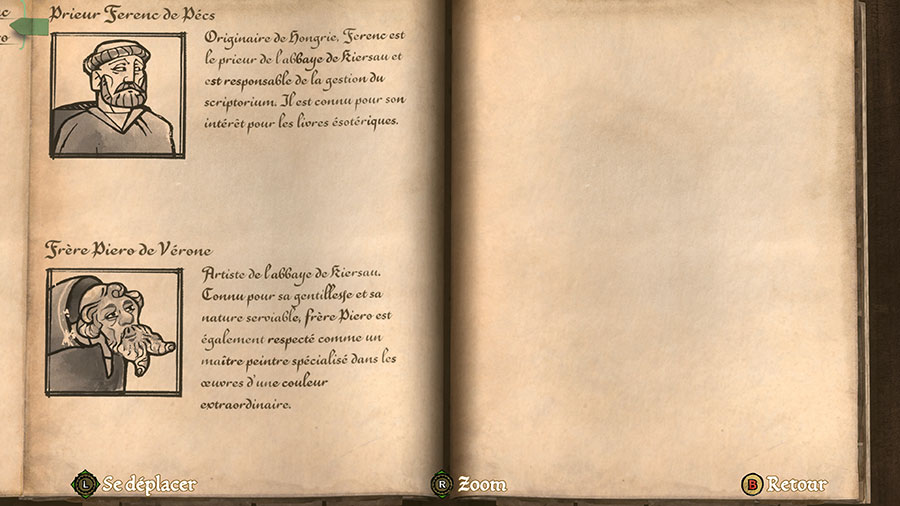 Prieur Ferenc de Pécs
Originaire de Hongrie, Ferenc est
le prieur de l'abbaye de Kiersau et
est responsable de la gestion du
scriptorium. Il est connu pour son
intérêt pour les livres ésotériques.
Frère Piero de Vérone
Artiste de l'abbaye de Kiersau.
Connu pour sa gentillesse et sa
nature serviable, frère Piero est
également respecté comme un
maître peintre spécialisé dans les
œuvres d'une couleur
extraordinaire.
L Se déplacer
R Zoom
B Retour